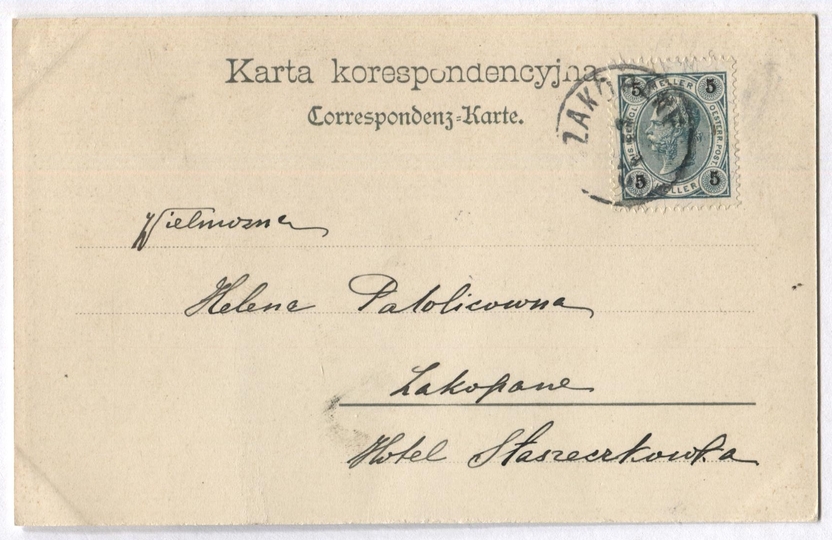 Karta korespondencyjna
Correspondenz-Karte.
ZAKOPANE
5 HELLER 5
OESTERR. POST
5 HELLER 5
Wielmożna
Helena Patolicowna
Zakopane
Hotel Staszeczkowka